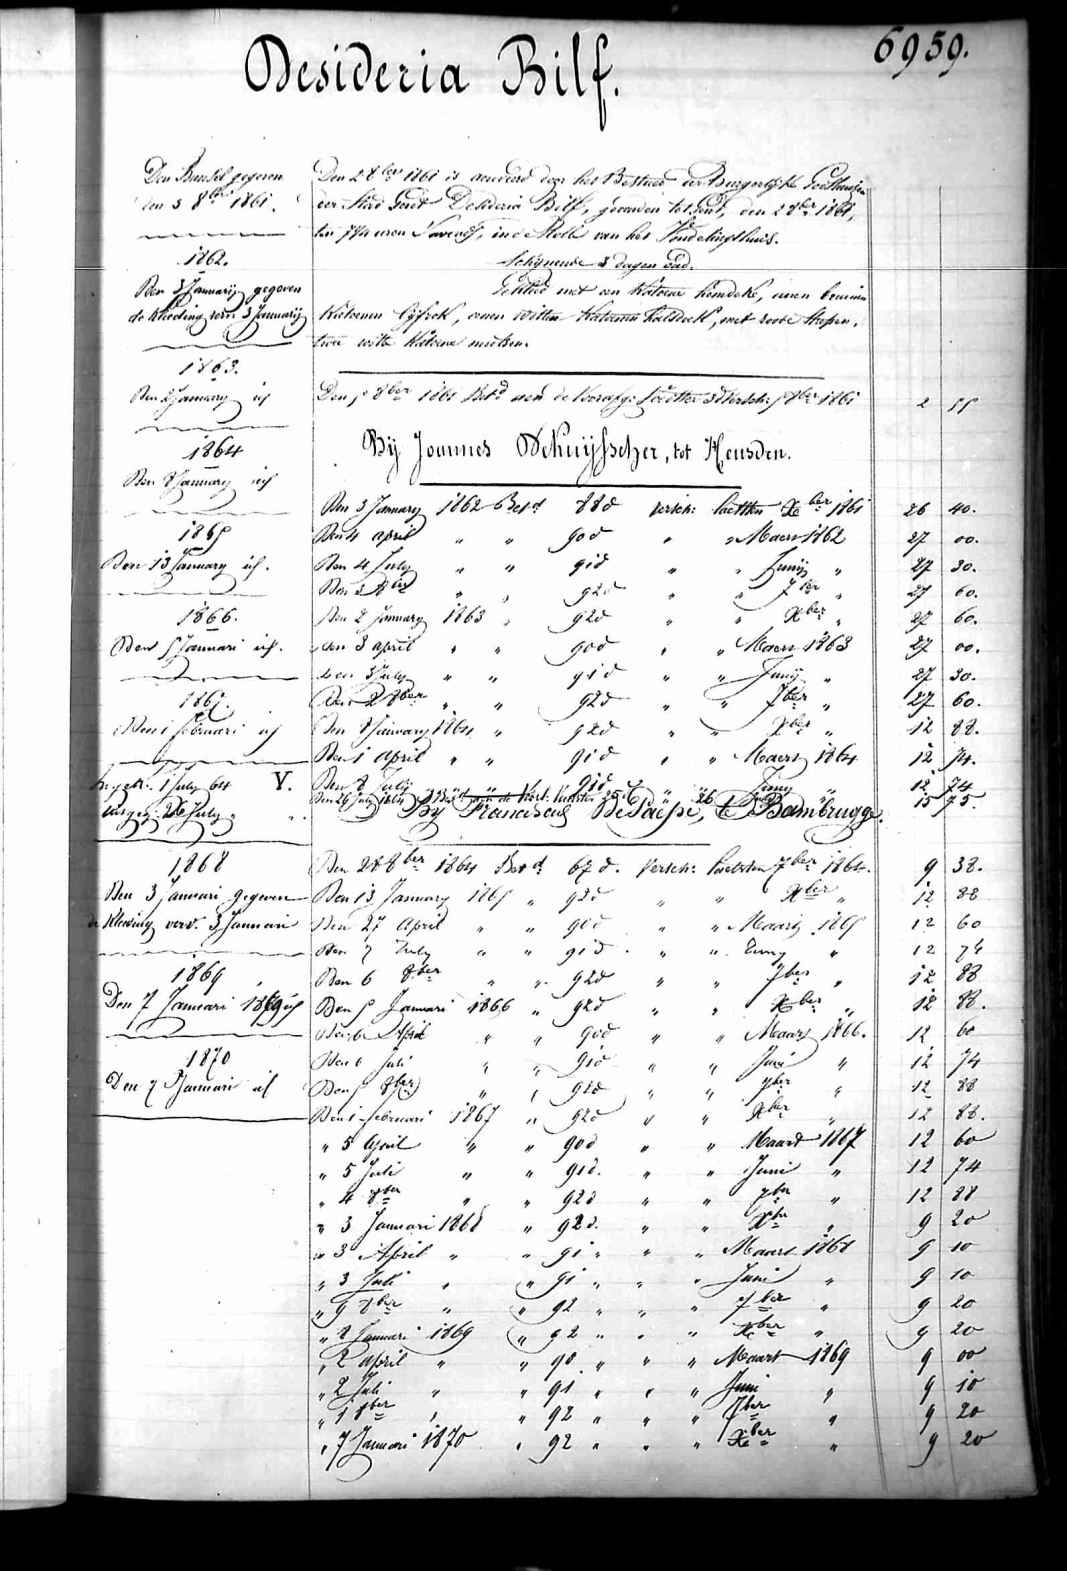 6959.
Desideria Bilf.
Den Bundel gegeven
den 3 8ber 1861.
1862.
Den 3 Januarij gegeven
de kleeding verv. 3 Januarij
1863.
Den 2 January id
1864
Den 8 January id
1865
Den 13 January id.
1866.
Den 5 Januari id.
1867.
Den 1 februari id
Ingek. 1 July 64 V.
uitgeg. 26 July "
1868
Den 3 Januari gegeven
de kleeding verv. 3 Januari
1869
Den 7 Januari 1869 id
1870
Den 7 Januari id
Den 2 8ber 1861 is aenveerd door het Bestuur der Burgerlijke Godshuizen
der Stad Gent Desideria Bilf, gevonden tot Gent, den 2 8ber 1861,
ten 7 3/4 uren s'avonds, in de Rolle van het Vondelingshuis.
Schynende 3 dagen oud.
Gekleed met een katoene hemdeke, eenen bruinen
katoenen lyfrok, eenen witten katoenen halsdoek, met roode streepen,
twee witte katoene mutsen.
Den 5 8ber 1861 Betd aen de Voorzorg: 8ber 1861 2 55
By Joannes DeKuysscher, tot Heusden.
Den 3 January 1862 Betd 88d versch: laetsten Xber 1861 26 40.
Den 4 april " " 90d " " Maert 1862 27 00.
Den 4 July " " 91d " " Junij " 27 30.
Den 3 8ber " " 92d " " 7ber " 27 60.
Den 2 January 1863 " 92d " " Xber " 27 60.
Den 3 april " " 90d " " Maert 1863 27 00.
Den 3 July " " 91d " " Junij " 27 30.
Den 2 8ber " " 92d " " 7ber " 27 60.
Den 8 January 1864 " 92d " " Xber " 12 88.
Den 1 april " " 91d " " Maert 1864 12 74.
Den 8 July " " 91d " " Juny " 12 74
Den 26 July 1864 15 75.
By Franciscus DePaepe, te Bambrugge.
Den 28 8ber 1864 Betd 67d. Versch: laetsten 7ber 1864. 9 38.
Den 13 January 1865 " 92d " " Xber " 12 88
Den 27 April " " 90d " " Maart 1865 12 60
Den 7 July " " 91d " " Juny " 12 74
Den 6 8ber " " 92d " " 7ber " 12 88
Den 5 Januari 1866 " 92d " " Xber " 12 88.
Den 6 April " " 90d " " Maart 1866. 12 60
Den 6 Juli " " 91d " " Juni " 12 74
Den 5 8ber " " 92d " " 7ber " 12 88
Den 1 februari 1867 " 92d " " Xber " 12 88.
" 5 April " " 90d " " Maart 1867 12 60
" 5 Juli " " 91d. " " Juni " 12 74
" 4 8ber " " 92d " " 7ber " 12 88
" 3 Januari 1868 " 92d. " " Xber " 9 20
" 3 April " " 91 " " " Maart 1868 9 10
" 3 Juli " " 91 " " " Juni " 9 10
" 9 8ber " " 92 " " " 7ber " 9 20
" 8 Januari 1869 " 92 " " " Xber " 9 20
" 2 April " " 90 " " " Maart 1869 9 00
" 2 Juli " " 91 " " " Juni " 9 10
" 1 8ber " " 92 " " " 7ber " 9 20
" 7 Januari 1870 " 92 " " " Xber " 9 20